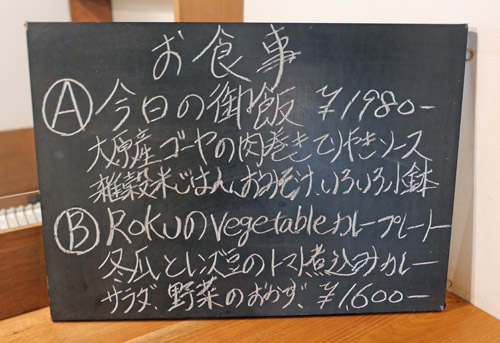 お食事
Ⓐ今日の御飯 ¥1980-
大原産ゴーヤの肉巻きてりやきソース
雑穀米ごはん、おみそ汁、いろいろ小鉢
ⒷRokuのVegetableカレープレート
冬瓜とレンズ豆のトマト煮込みカレー
サラダ、野菜のおかず、¥1,600-